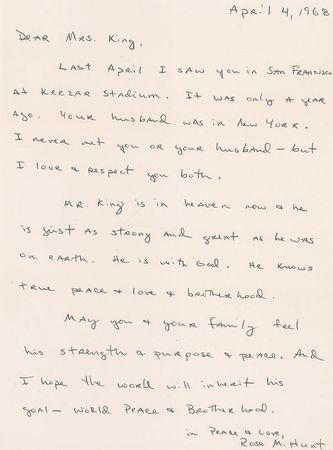 April 4, 1968
Dear Mrs. King,
Last April I saw you in San Francisco
at Keezar Stadium. It was only a year
ago. Your husband was in New York.
I never met you or your husband - but
I love & respect you both.
Mr. King is in heaven now & he
is just as strong and great as he was
on earth. He is with God. He knows
true peace & love & brotherhood.
May you & your family feel
his strength & purpose & peace. And
I hope the world will inherit his
goal - World Peace & Brotherhood.
in Peace & Love,
Rose M. Hunt